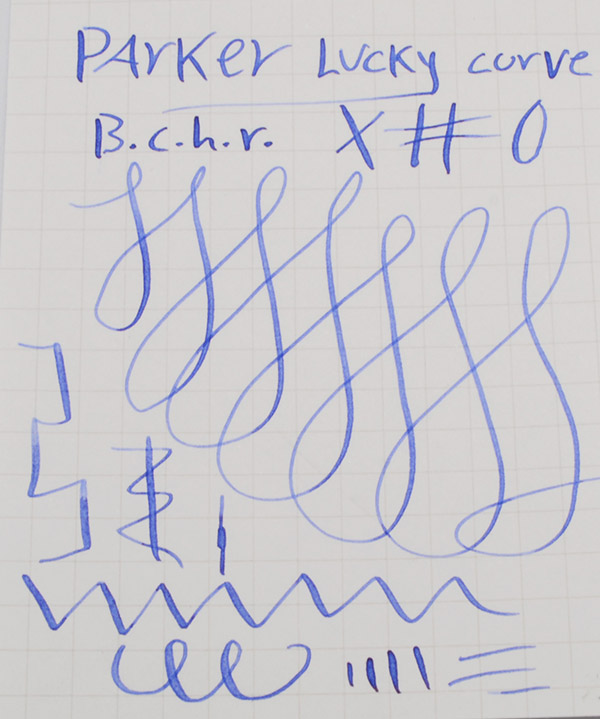 PArKer Lucky curve
B.c.h.r. X # 0